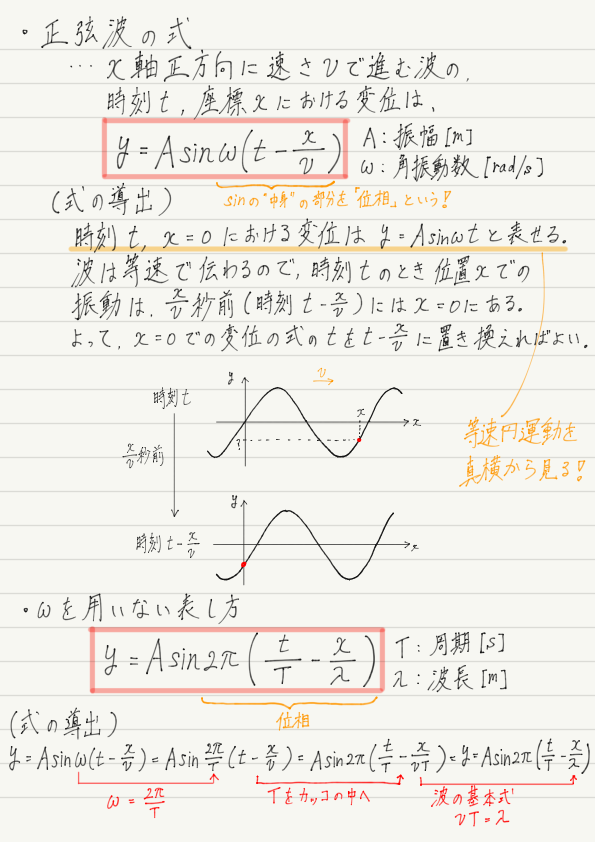 ・正弦波の式
… x軸正方向に速さvで進む波の、
時刻t, 座標xにおける変位は、
y = A sin ω(t - x/v)
A : 振幅 [m]
ω : 角振動数 [rad/s]
sinの"中身"の部分を「位相」という!
(式の導出)
時刻t, x=0における変位は y=Asinωtと表せる。
波は等速で伝わるので、時刻tのとき位置xでの
振動は、x/v秒前(時刻t-x/v)にはx=0にある。
よって、x=0での変位の式のtをt-x/vに置き換えればよい。
等速円運動を
真横から見る!
時刻t
y
v
x
x
?
x/v秒前
時刻t-x/v
y
x
・ωを用いない表し方
y = A sin 2π(t/T - x/λ)
T : 周期 [s]
λ : 波長 [m]
位相
(式の導出)
y = A sin ω(t - x/v) = A sin 2π/T (t - x/v) = A sin 2π(t/T - x/vT) = y = A sin 2π(t/T - x/λ)
ω = 2π/T
Tをカッコの中へ
波の基本式
vT = λ